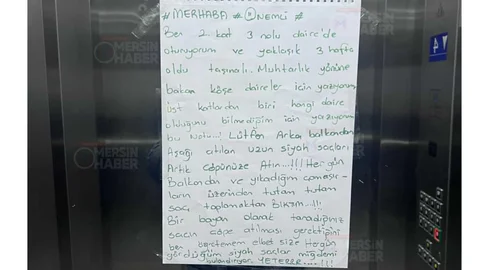 # MERHABA # ÖNEMLİ #
Ben 2. kat 3 nolu daire'de
oturuyorum ve yaklaşık 3 hafta
oldu taşınalı. Muhtarlık yönüne
bakan köşe daireler için yazıyorum
üst katlardan biri hangi daire
olduğunu bilmediğim için yazıyorum
bu notu..! LÜTFEN Arka balkondan
Aşağı atılan uzun siyah saçları
Artık çöpünüze Atın...!!! Her gün
Balkondan ve yıkadığım çamaşır-
ların üzerinden tutam tutam
saç toplamaktan BIKTIM...!!
Bir bayan olarak taradığınız
saçın çöpe atılması gerektiğini
ben öğretemem elbet size Hergün
gördüğüm siyah saçlar midemi
bulandırıyor YETERRR...!!!
MERSİN
HABER
MERSİN
HABER
MERSİN
HABER
4